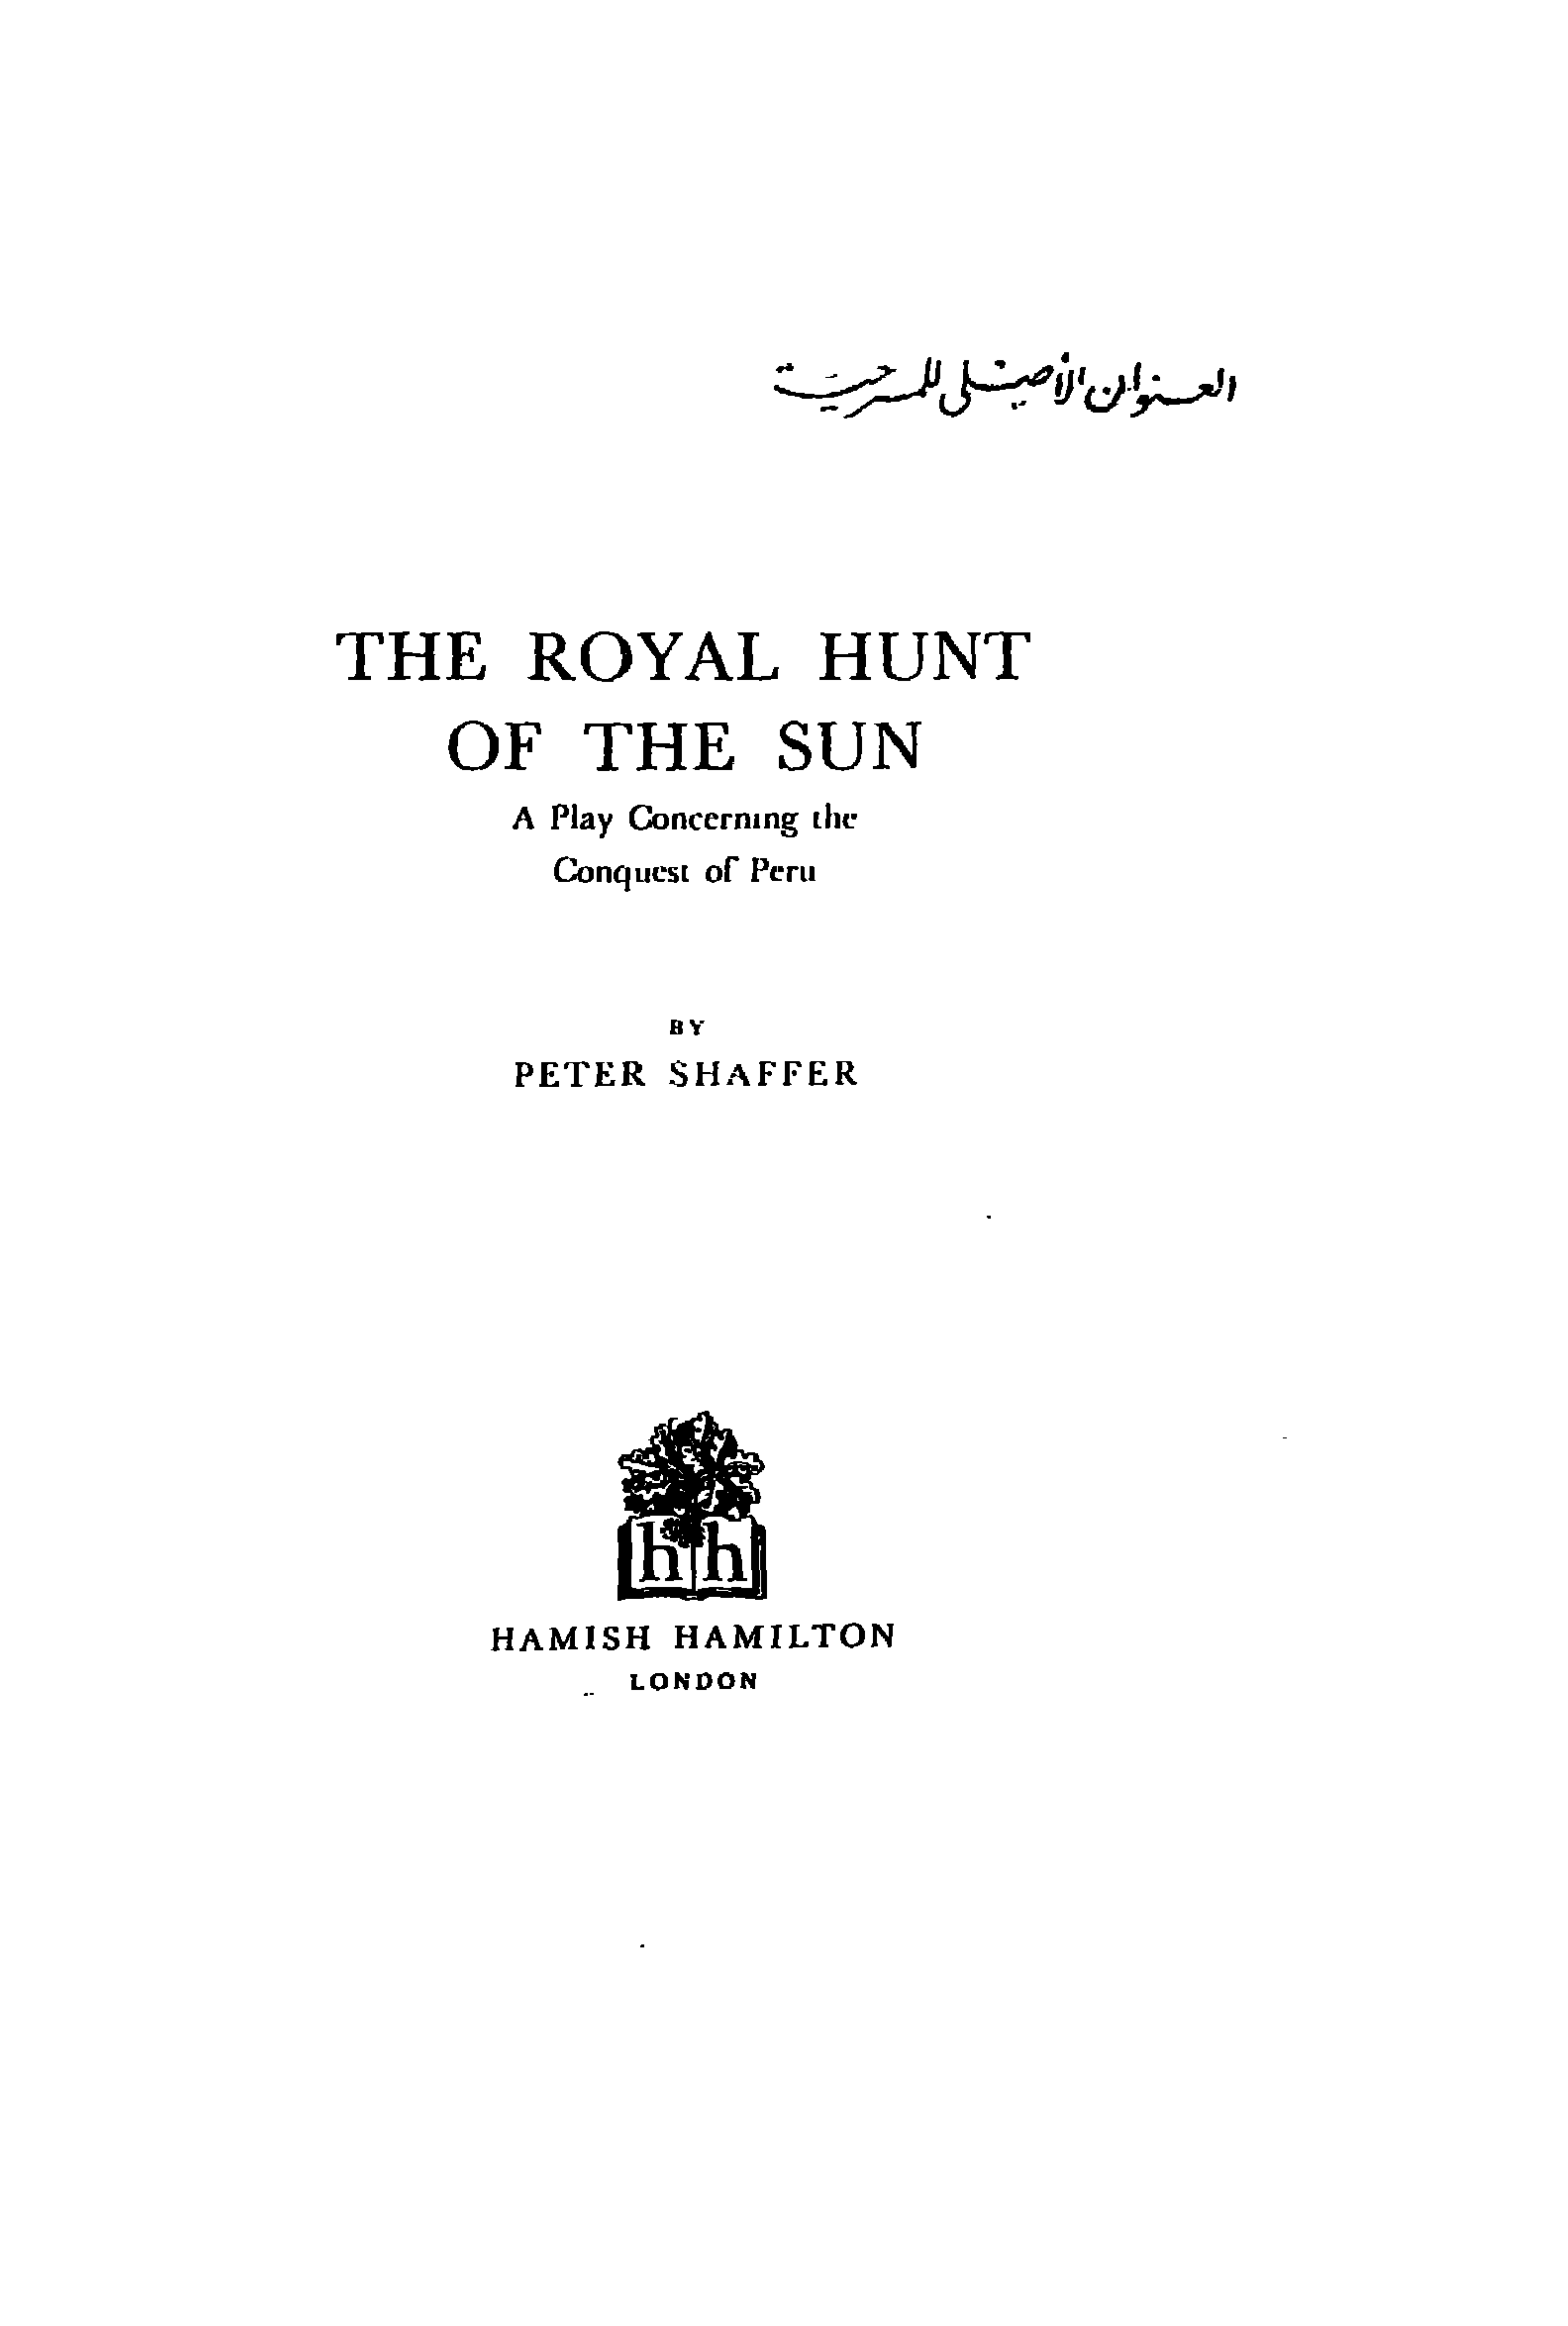 العنوان الأصلي للمسرحية
THE ROYAL HUNT
OF THE SUN
A Play Concerning the
Conquest of Peru
BY
PETER SHAFFER
h h
HAMISH HAMILTON
LONDON